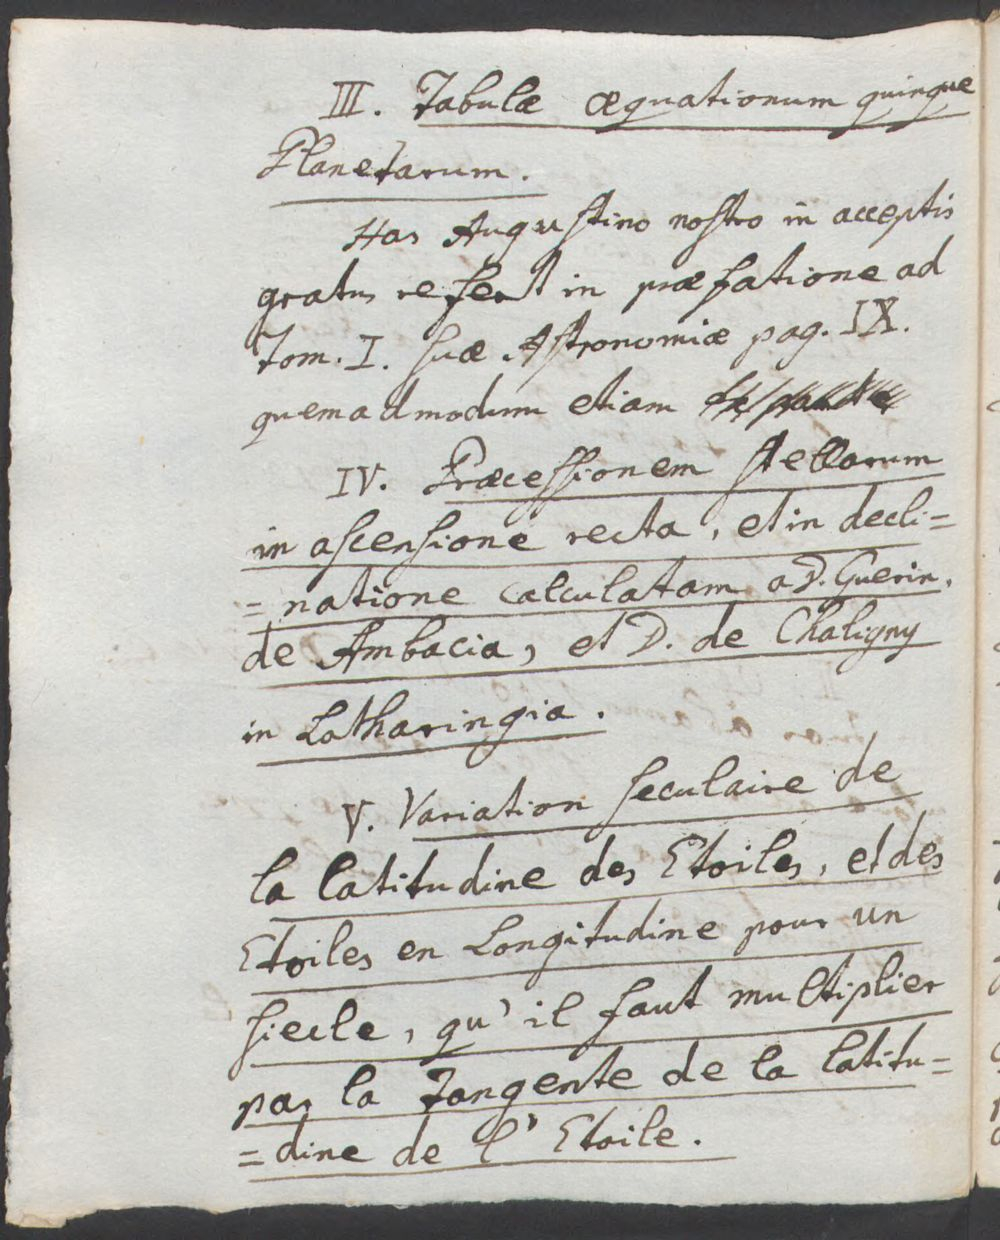 III. Tabulæ æquationum quinque
Planetarum.
Has Augustino nostro in acceptis
gratus refert in præfatione ad
Tom. I. suæ Astronomiæ pag. IX.
quemadmodum etiam
IV. Præcessionem stellarum
in ascensione recta, et in decli=
=natione calculatam a D. Guerin,
de Ambacia, et D. de Chaligny
in Lotharingia.
V. Variation seculaire de
la latitudine des Etoiles, et des
Etoiles en Longitudine pour un
siecle, qu'il faut multiplier
par la Tangente de la latitu=
=dine de l'Etoile.